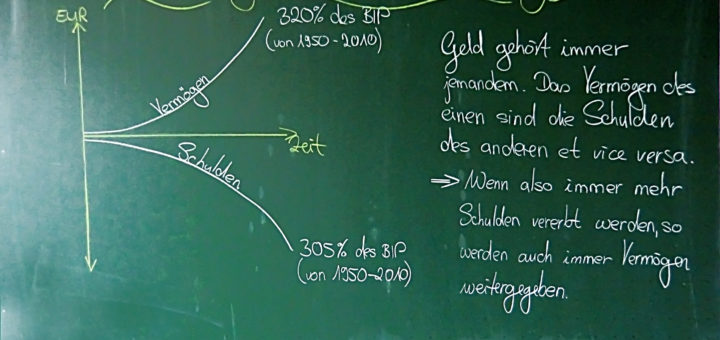 EUR
320% des BIP
(von 1950-2010)
Vermögen
Zeit
Schulden
305% des BIP
(von 1950-2010)
Geld gehört immer
jemandem. Das Vermögen des
einen sind die Schulden
des anderen et vice versa.
⇒ Wenn also immer mehr
Schulden vererbt werden, so
werden auch immer Vermögen
weitergegeben.